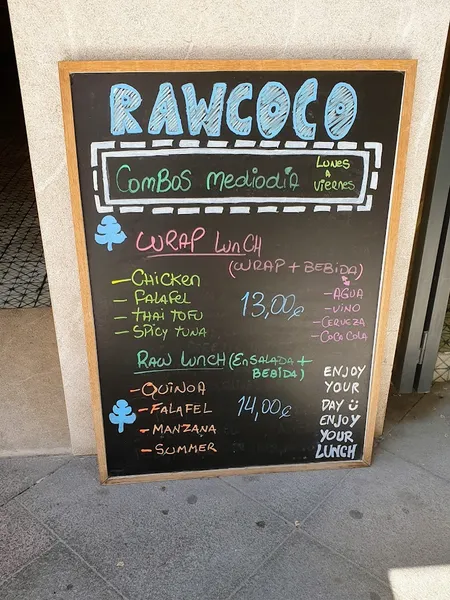 RAWCOCO
ComBos mediodiA
LUNES
A
VIERNES
WRAP LUNCH
(WRAP + BEBIDA)
- CHICKEN
- FALAFEL
- THAI TOFU
- SPICY TUNA
13,00€
- AGUA
- VINO
- CERVEZA
- COCO COLA
RAW LUNCH (ENSALADA +
BEBIDA)
- QUINOA
- FALAFEL
- MANZANA
- SUMMER
14,00€
ENJOY
YOUR
DAY
ENJOY
YOUR
LUNCH